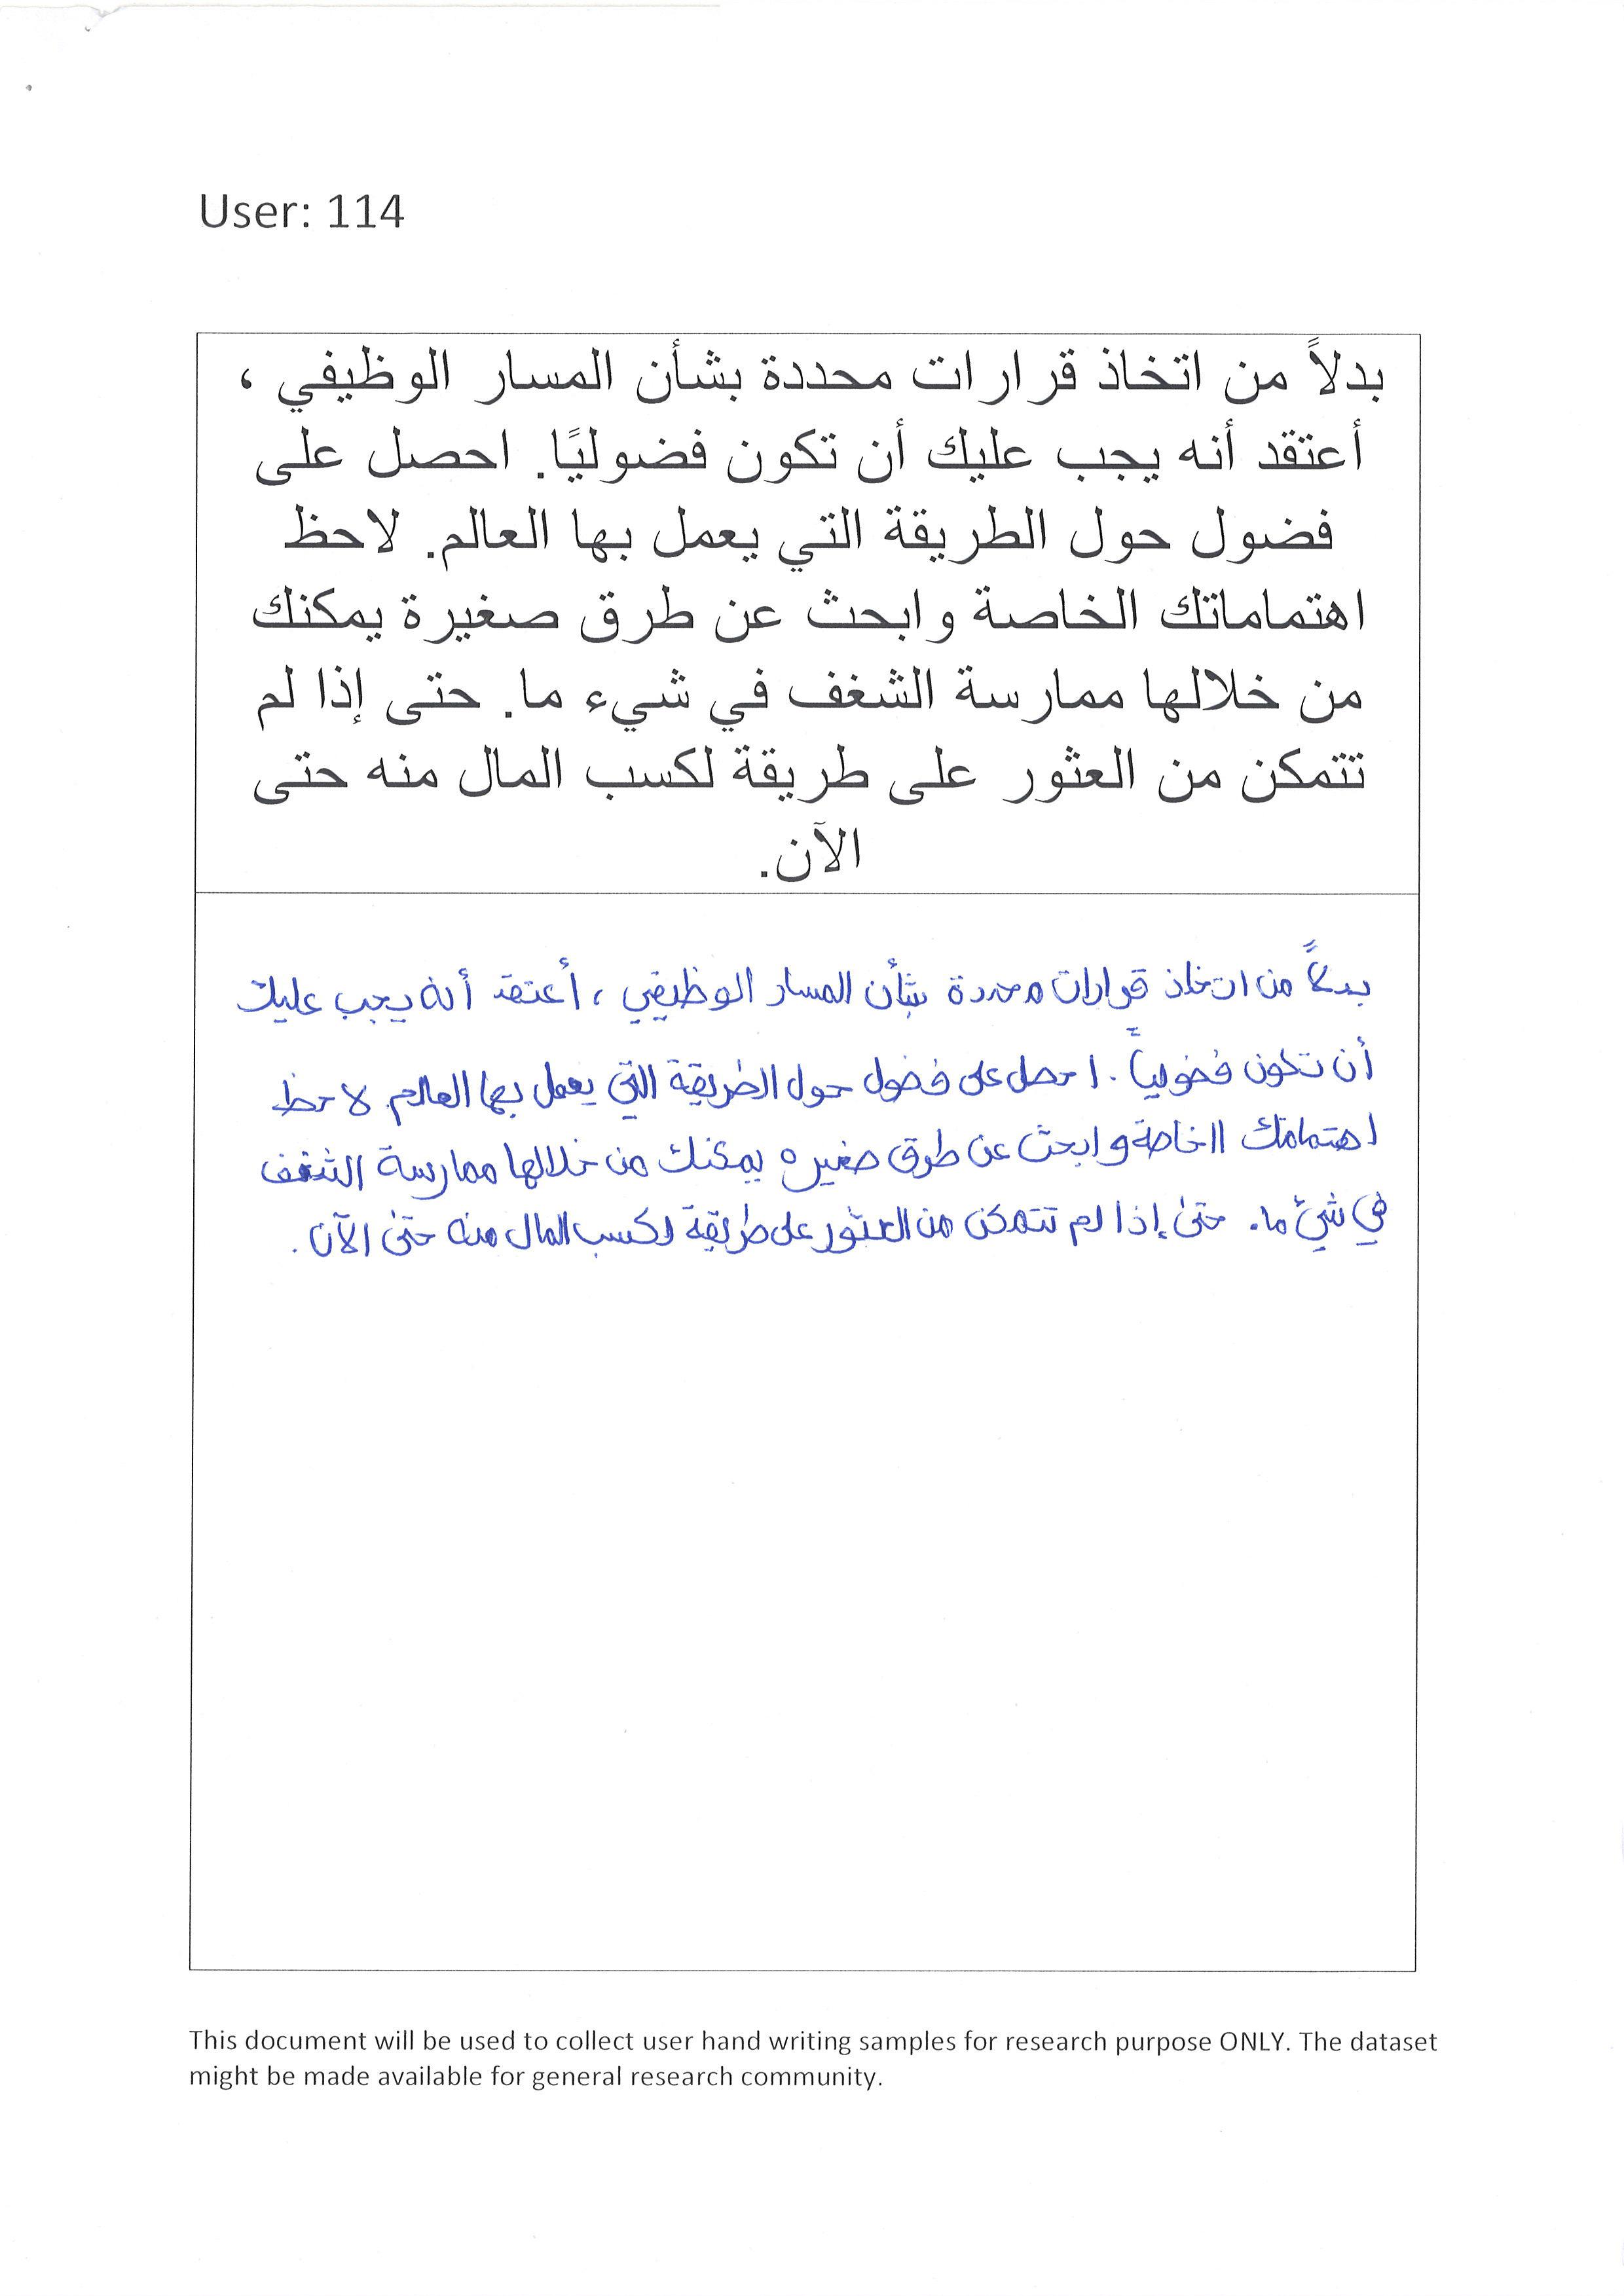 User: 114
بدلاً من اتخاذ قرارات محددة بشأن المسار الوظيفي ،
أعتقد أنه يجب عليك أن تكون فضوليًا. احصل على
فضول حول الطريقة التي يعمل بها العالم. لاحظ
اهتماماتك الخاصة وابحث عن طرق صغيرة يمكنك
من خلالها ممارسة الشغف في شيء ما. حتى إذا لم
تتمكن من العثور على طريقة لكسب المال منه حتى
الآن.
بدلاً من اتخاذ قرارات محددة بشأن المسار الوظيفي ، أعتقد أنه يجب عليك
أن تكون فضولياً . احصل على فضول حول الطريقة التي يعمل بها العالم. لاحظ
اهتمامتك الخاصة وابحث عن طرق صغيره يمكنك من خلالها ممارسة الشغف
في شيئ ما. حتى إذا لم تتمكن من العثور على طريقة لكسب المال منه حتى الآن .
This document will be used to collect user hand writing samples for research purpose ONLY. The dataset
might be made available for general research community.